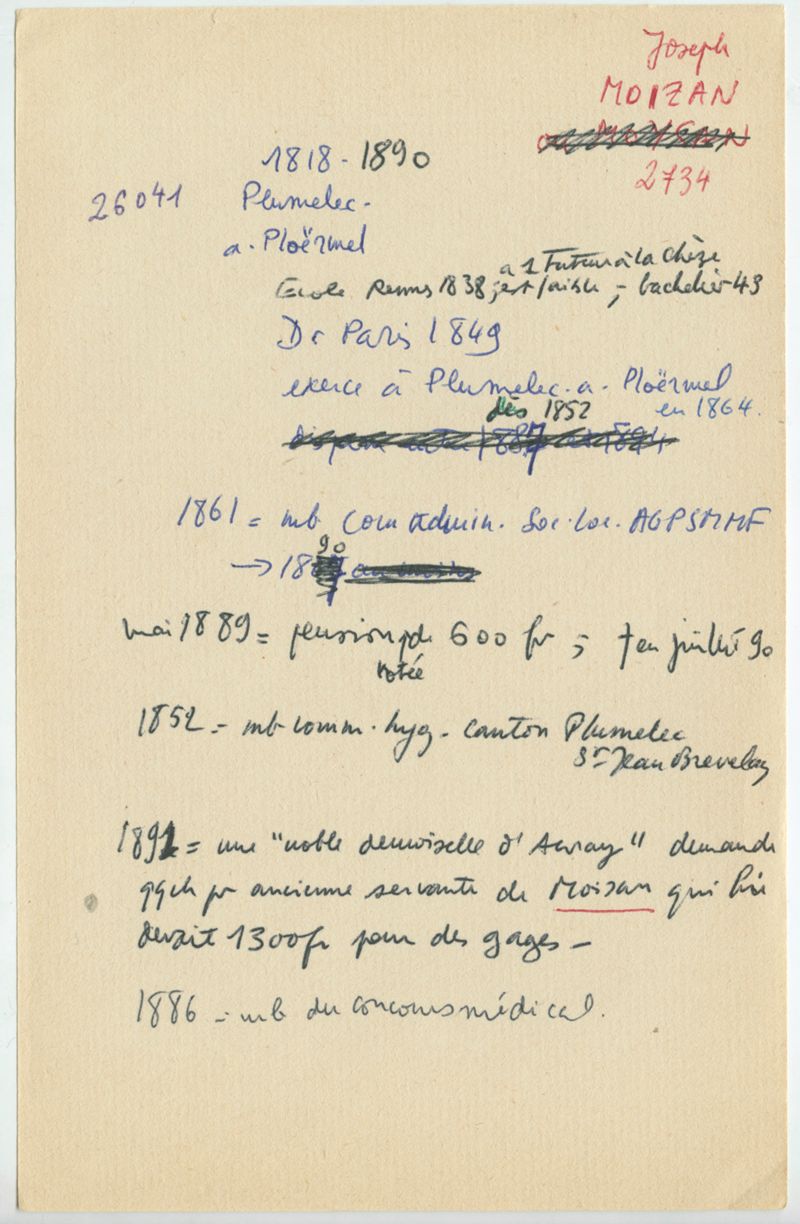 Joseph
MOIZAN
2734
1818 - 1890
26041 Plumelec -
a. Ploërmel
a 1 Futur à la Chèze
Ecole Rennes 1838, est faible ; - bachelier 43
Dr Paris 1849
exerce à Plumelec. a. Ploërmel
dès 1852 en 1864.
1861 = mb Com admin. Soc. loc. AGPSMMF
→ 1890
mai 1889 = pension de 600 fr ; † en juillet 90
votée
1852 = mb comm. hyg. canton Plumelec
St Jean Brevelay
1891 = une "noble demoiselle d'Auray" demande
qqch pr ancienne servante de Moizan qui lui
devait 1300fr pour des gages -
1886 = mb du concours médical.